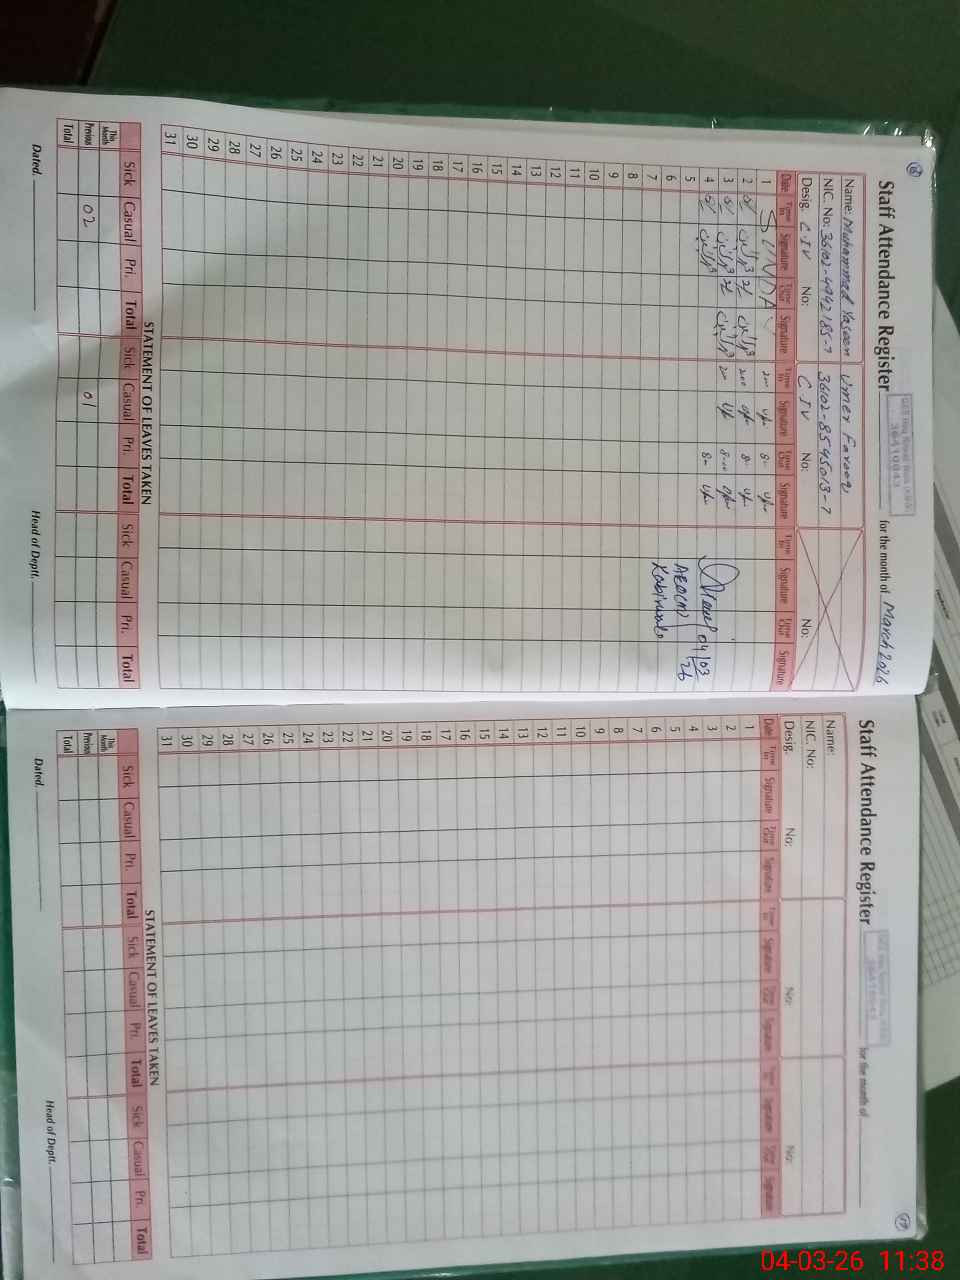 Staff Attendance Register for the month of March 2026
36410043
Name: Muhammad Yaseen Umer Farooq
NIC. No: 36102-4942185-7 36102-8545013-7
Desig. C.IV No: C IV No: No:
Date Time In Signature Time Out Signature Time In Signature Time Out Signature Time In Signature Time Out Signature
1 SUNDAY
2
3
4 04/03/26
5 AEO(M)
6 Kabirwala
7
8
9
10
11
12
13
14
15
16
17
18
19
20
21
22
23
24
25
26
27
28
29
30
31
STATEMENT OF LEAVES TAKEN
Sick Casual Pri. Total Sick Casual Pri. Total Sick Casual Pri. Total
This Month
Previous 02 01
Total
Dated. Head of Deptt.
Staff Attendance Register for the month of
Name:
NIC. No:
Desig. No: No: No:
Date Time In Signature Time Out Signature Time In Signature Time Out Signature Time In Signature Time Out Signature
1
2
3
4
5
6
7
8
9
10
11
12
13
14
15
16
17
18
19
20
21
22
23
24
25
26
27
28
29
30
31
STATEMENT OF LEAVES TAKEN
Sick Casual Pri. Total Sick Casual Pri. Total Sick Casual Pri. Total
This Month
Previous
Total
Dated. Head of Deptt.
04-03-26 11:38